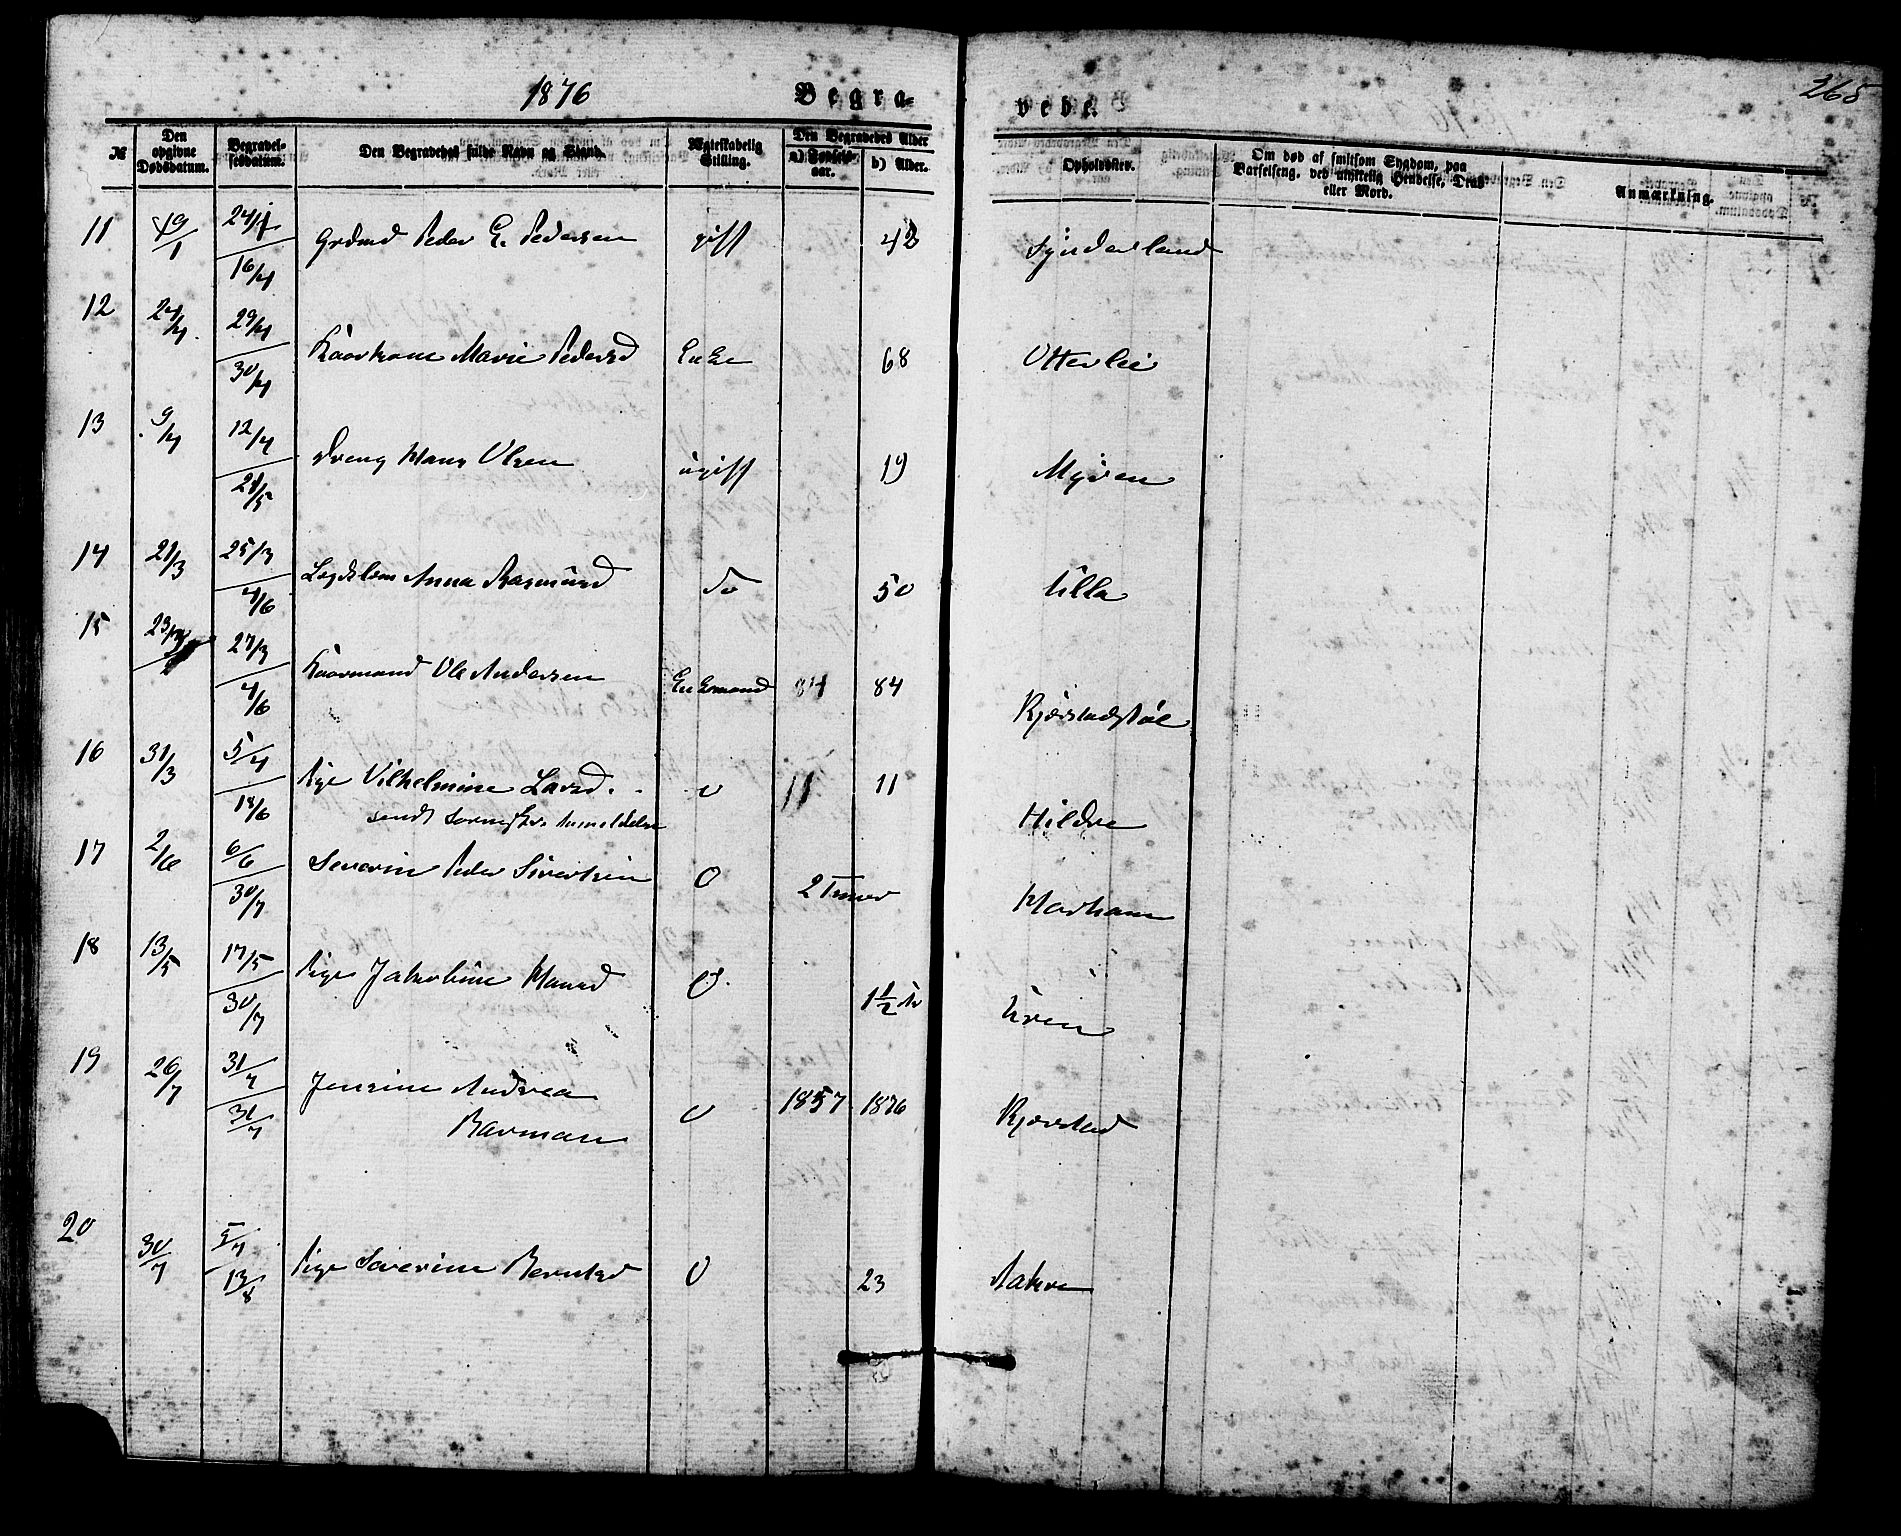 1876 Begra- vede. 265
№ Den opgivne Dødsdatum. Begravelsesdatum. Den Begravedes fulde Navn og Stand. Ægteskabelig Stilling. Den Begravedes Alder a) Fødselsaar. b) Alder. Opholdssted. Om død af smitsom Sygdom, paa Barselseng, ved ulykkelig Hendelse, Drab eller Mord. Anmærkning.
11 19/1 24/4 16/4 Grdmd Peder E. Pedersen gift 42 Synderland
12 24/4 29/4 30/4 Kaarkone Marie Pedersd Enke 68 Otterlei
13 9/4 12/4 21/5 Dreng Hans Olsen ugift 19 Myren
14 21/3 25/3 4/6 Lægdslem Anna Rasmusd do 50 Ulla
15 27/3 4/6 Kaarmand Ole Andersen Enkemand 84 84 Kjærstadstøl
16 31/3 5/4 18/6 Pige Vilhelmine Larsd. u 11 11 Hildre
sendt Anmeldelse
17 2/6 6/6 30/7 Severin Peder Sivertsen U 2 Timer Harham
18 13/5 17/5 30/7 Pige Jakobine Hansd U. 1½ År Uren
19 26/7 31/7 31/7 Jensine Andrea U 1857 1876 Kjærstad
Barman
20 30/7 5/7 13/8 Pige Severine Berntsd U 23 Aakre